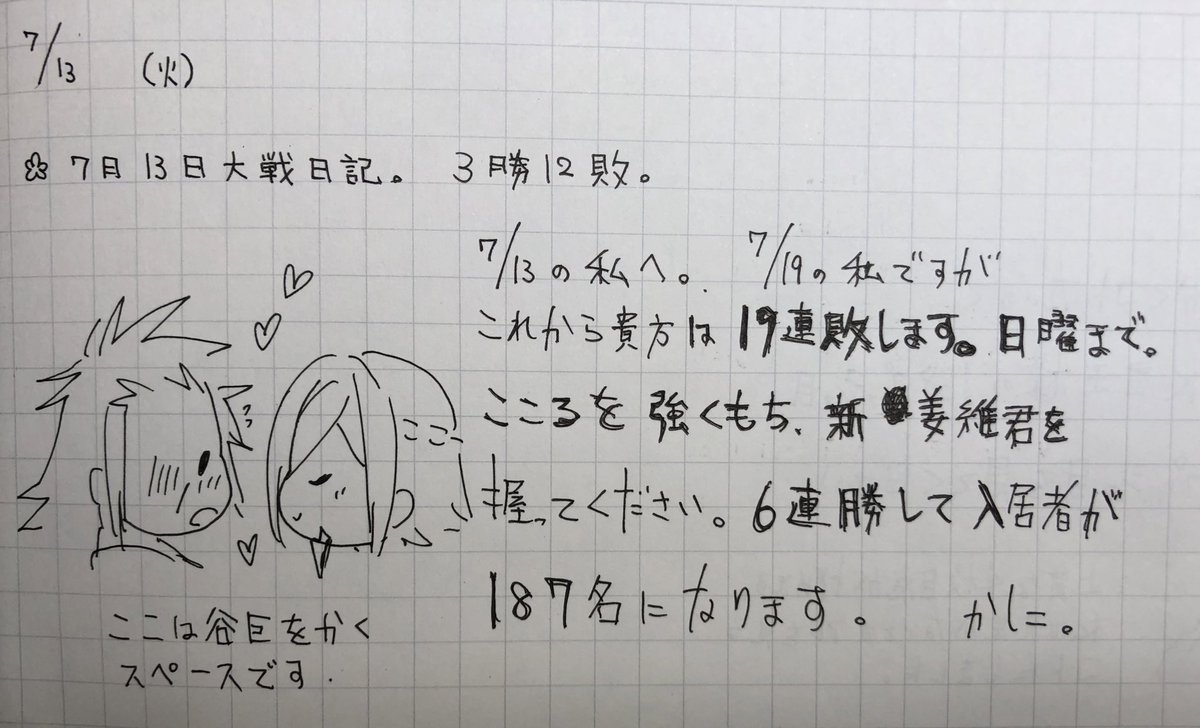 7/13 (火)
✿ 7月13日大戦日記。 3勝12敗。
7/13の私へ。 7/19の私ですが
これから貴方は19連敗します。日曜まで。
こころを強くもち、新姜維君を
握ってください。6連勝して入居者が
187名になります。 かしこ。
ここは谷巨をかく
スペースです.